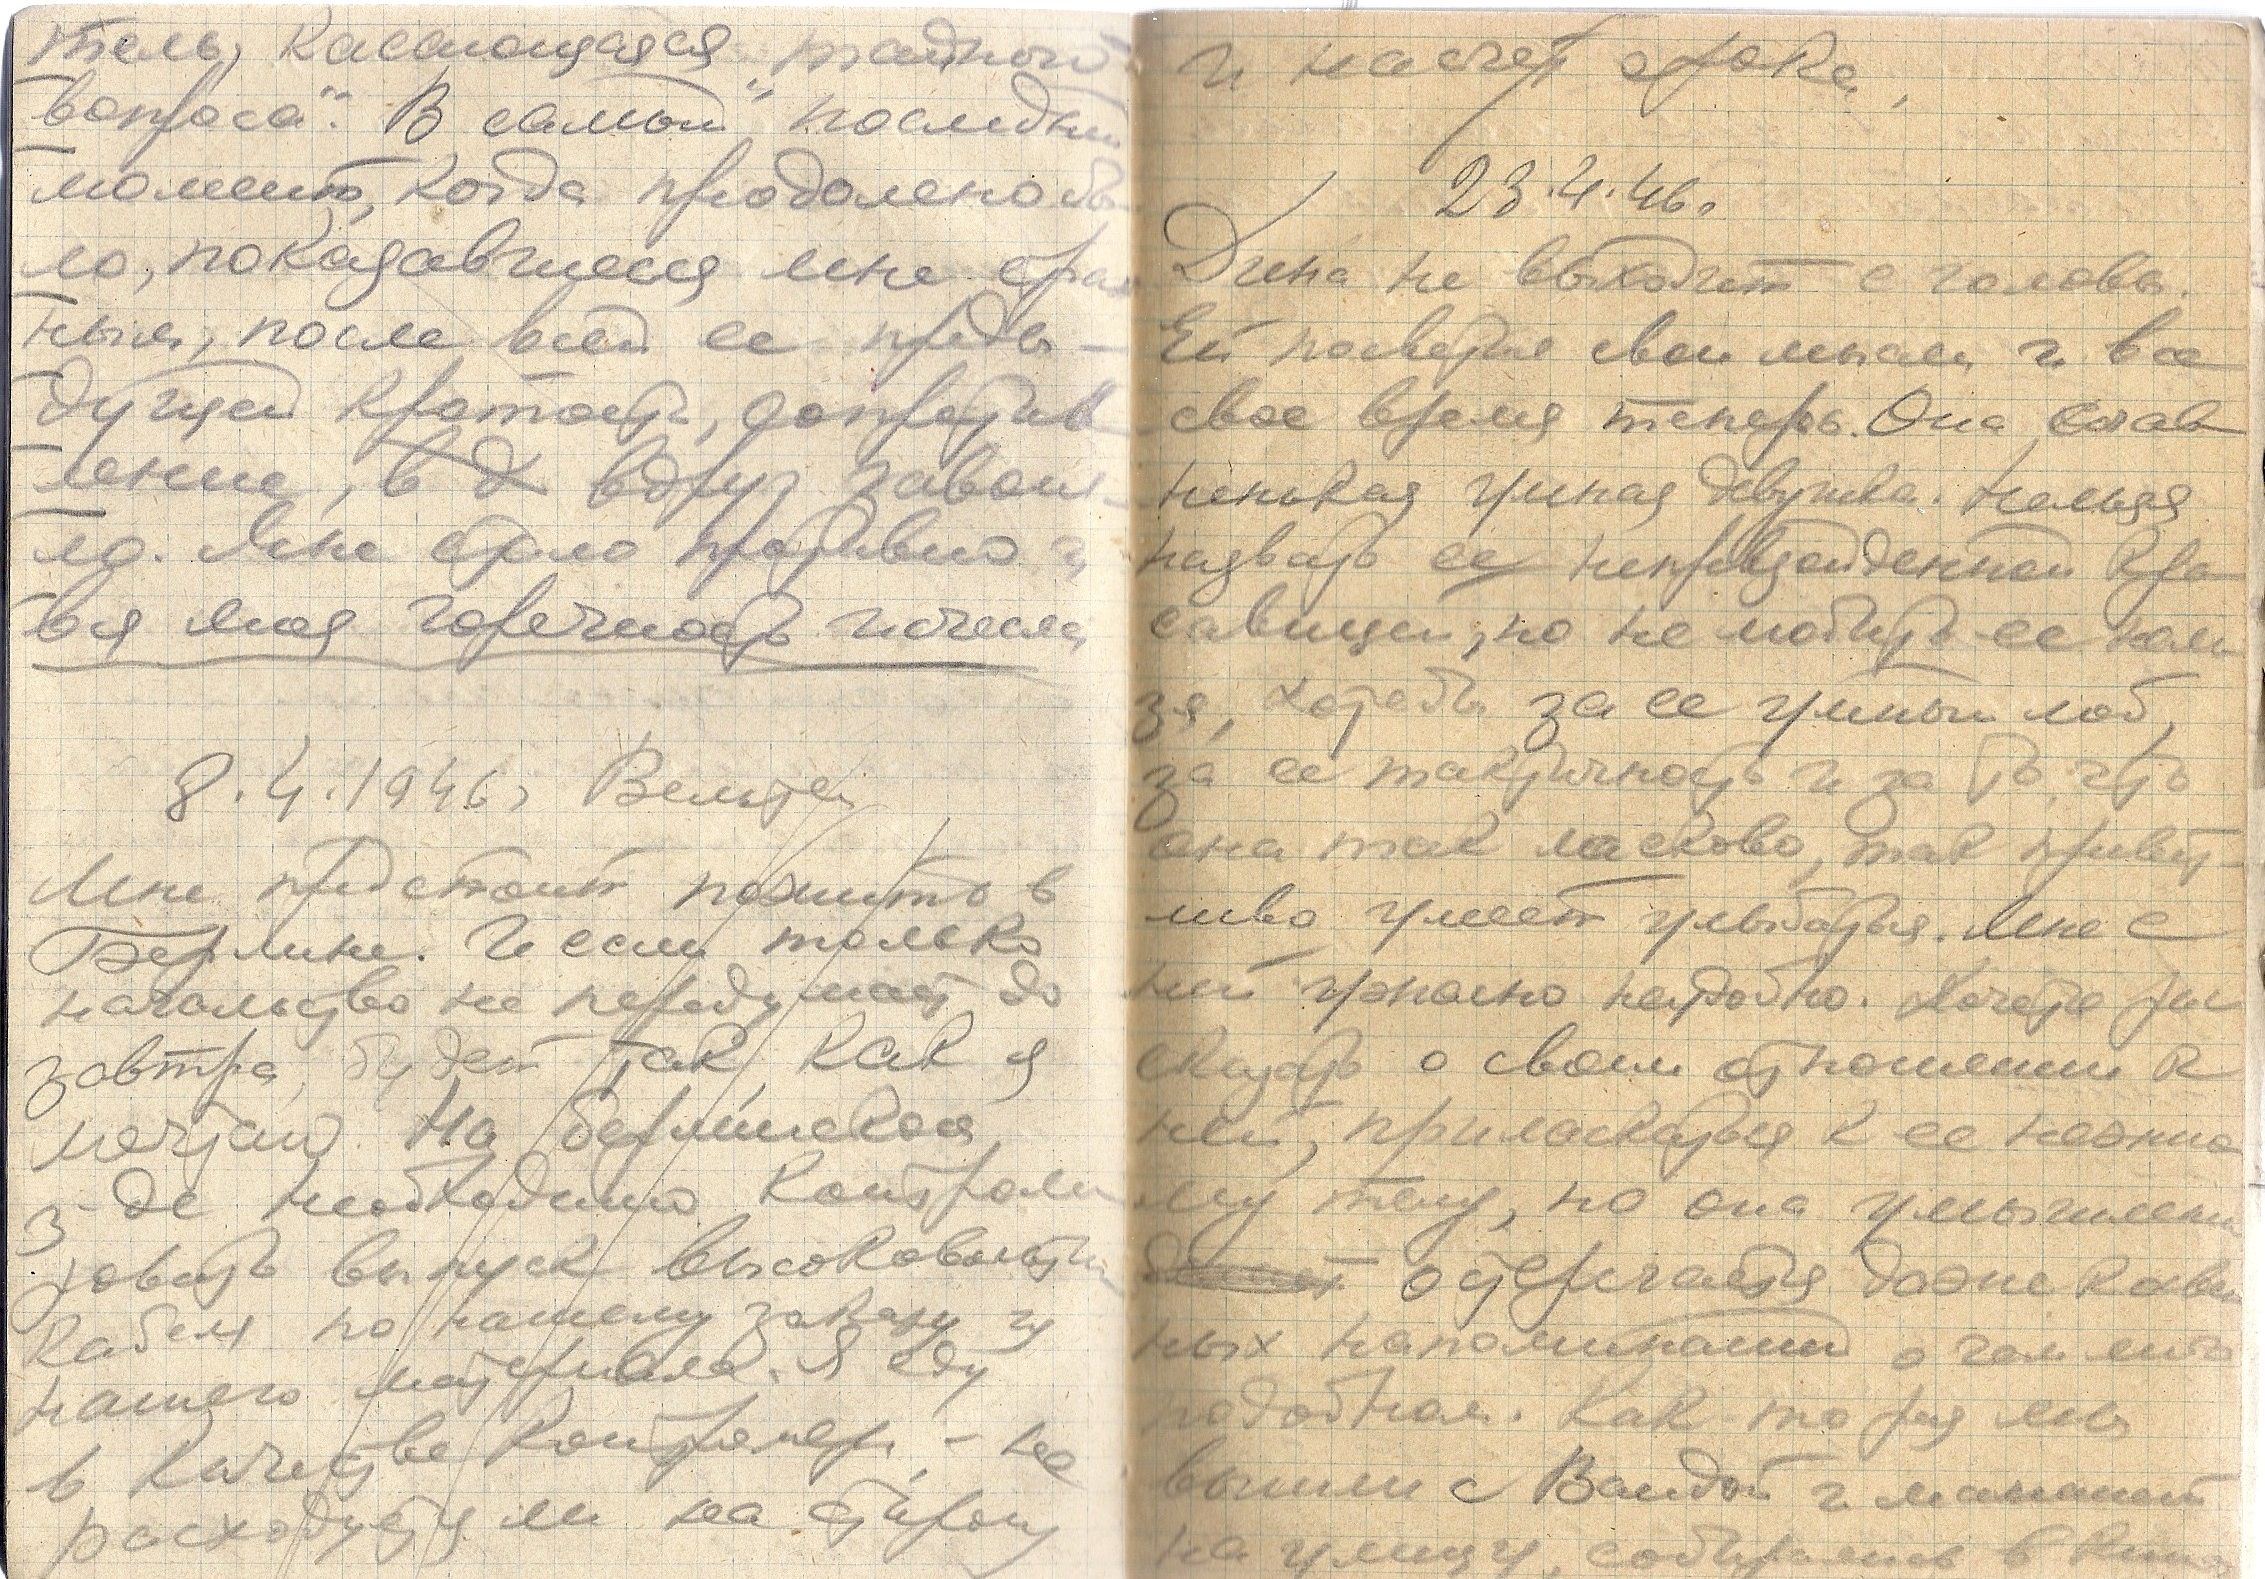 тель, касающаяся „тайного
вопроса“. В самый последний
момент, когда преодолено бы-
ло, показавшееся мне стран
ным, после всей ее преды-
дущей кротости, сопротив
ление, в д вдруг завоня-
ло. Мне стало противно и
вся моя горячность исчезла
8.4.1946г Вельтен
Мне предстоит пожить в
Берлине. И если только
начальство не передумает до
завтра, будет так, как я
мечтаю. На берлинском
з-де необходимо контроли
ровать выпуск высоковольтн
кабеля по нашему заказу из
нашего материала. Я еду
в качестве контролера, - не
расходуется ли на сторону
и насчет срока.
23.4.46г
Дина не выходит с головы.
Ей посвятил свои мысли и все
свое время теперь. Она слав
ненькая умная девушка. Нельзя
назвать ее непревзойденной кра
савицей, но не любить ее нель
зя, хотя бы за ее умный лоб,
за ее тактичность и за то, что
она так ласково, так привет-
ливо умеет улыбаться. Мне с
ней ужасно неудобно. Хочется
сказать о своем отношении к
ней, приласкаться к ее нежно
му телу, но она умышленно
отстраняется даже косвен
ных напоминаний о чем либо
подобном. Как-то раз мы
вышли с Вандой и мамашей
на улицу, собирались в кино